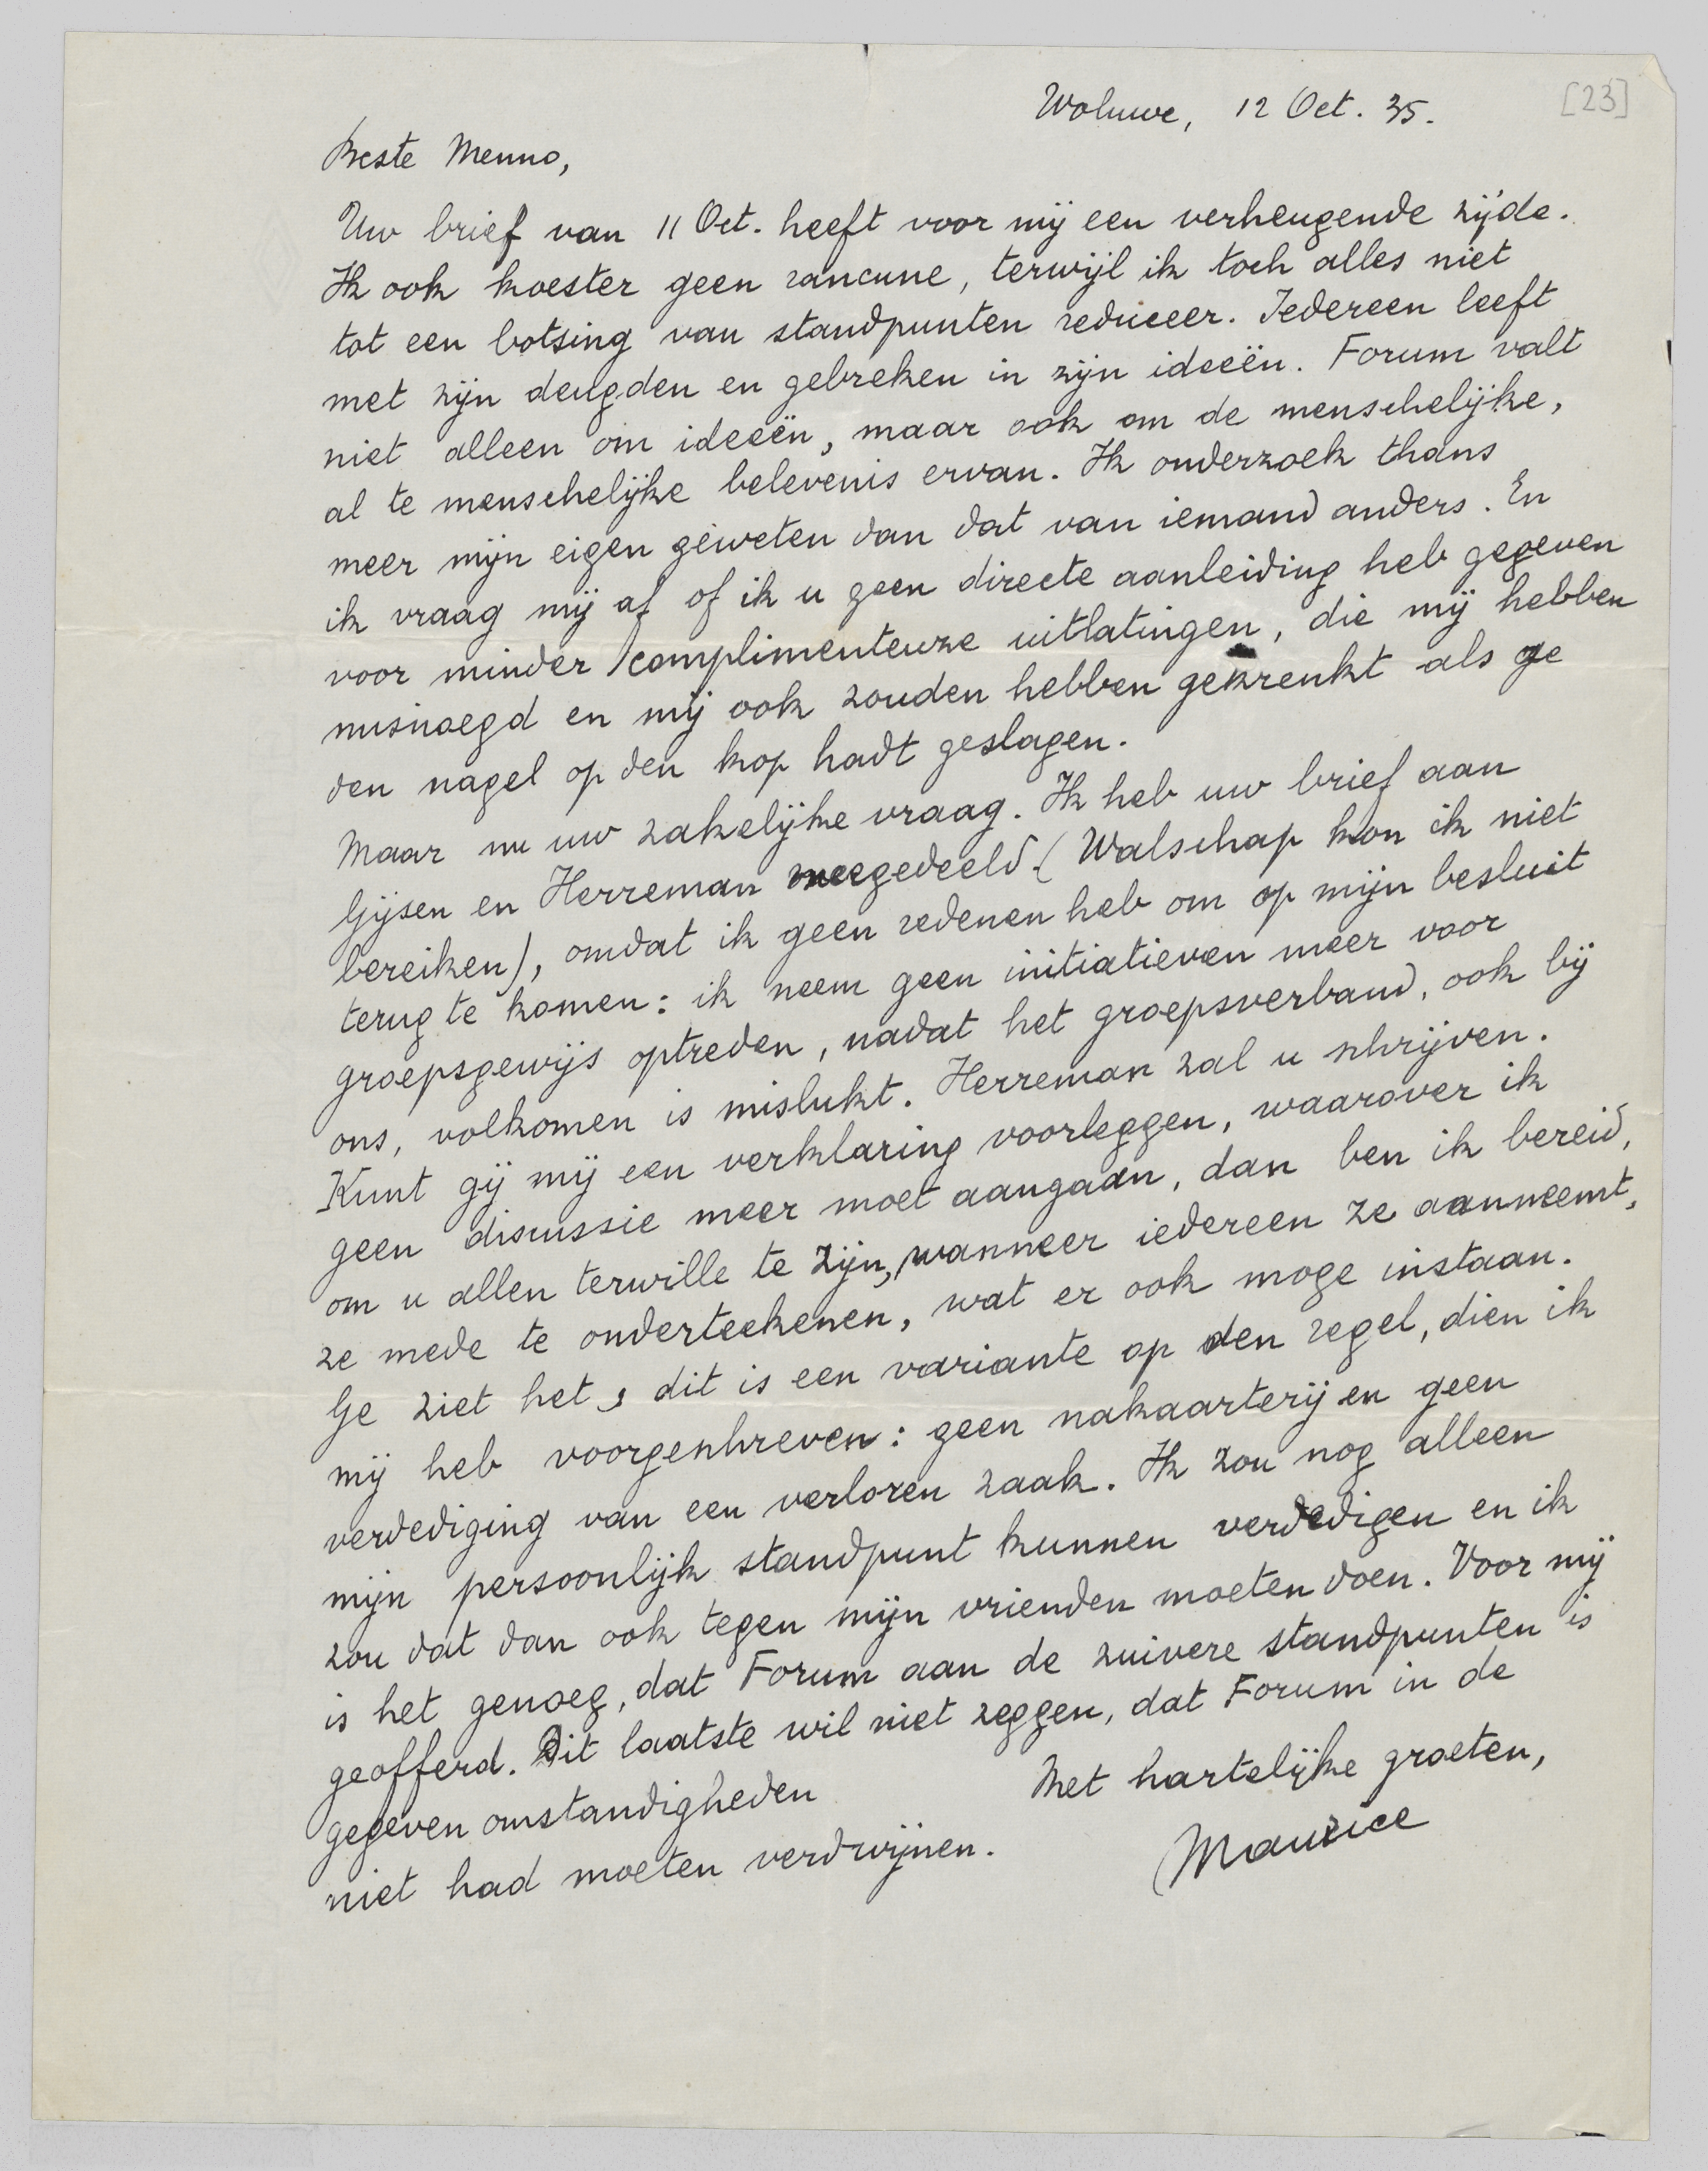 [23]
Woluwe, 12 Oct. 35.
Beste Menno,
Uw brief van 11 Oct. heeft voor mij een verheugende zijde.
Ik ook koester geen rancune, terwijl ik toch alles niet
tot een botsing van standpunten reduceer. Iedereen leeft
met zijn deugden en gebreken in zijn ideeën. Forum valt
niet alleen om ideeën, maar ook om de menschelijke,
al te menschelijke belevenis ervan. Ik onderzoek thans
meer mijn eigen geweten dan dat van iemand anders. En
ik vraag mij af of ik u geen directe aanleiding heb gegeven
voor minder complimenteuze uitlatingen, die mij hebben
misnoegd en mij ook zouden hebben gekrenkt als ge
den nagel op den kop hadt geslagen.
Maar nu uw zakelijke vraag. Ik heb uw brief aan
Gijsen en Herreman meegedeeld (Walschap kon ik niet
bereiken), omdat ik geen redenen heb om op mijn besluit
terug te komen: ik neem geen initiatieven meer voor
groepsgewijs optreden, nadat het groepsverband, ook bij
ons, volkomen is mislukt. Herreman zal u schrijven.
Kunt gij mij een verklaring voorleggen, waarover ik
geen discussie meer moet aangaan, dan ben ik bereid,
om u allen terwille te zijn, wanneer iedereen ze aanneemt,
ze mede te onderteekenen, wat er ook moge instaan.
Ge ziet het, dit is een variante op den regel, dien ik
mij heb voorgeschreven: geen nakaarterij en geen
verdediging van een verloren zaak. Ik zou nog alleen
mijn persoonlijk standpunt kunnen verdedigen en ik
zou dat dan ook tegen mijn vrienden moeten doen. Voor mij
is het genoeg, dat Forum aan de zuivere standpunten is
geofferd. Dit laatste wil niet zeggen, dat Forum in de
gegeven omstandigheden
niet had moeten verdwijnen.
Met hartelijke groeten,
Maurice